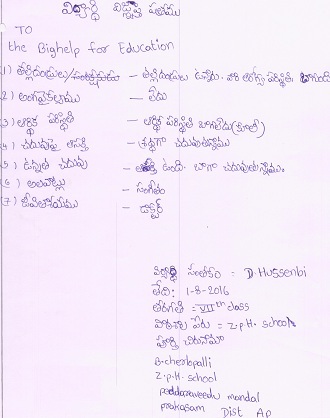 విద్యార్థి విజ్ఞప్తి పత్రము
TO
the Bighelp for Education
(1) తల్లిదండ్రులు/సంరక్షకుడు - తల్లిదండ్రులు ఉన్నారు. వారి ఆరోగ్య పరిస్థితి బాగుంది
(2) అంగవైకల్యము - లేదు
(3) ఆర్థిక పరిస్థితి - ఆర్థిక పరిస్థితి బాగలేదు (కూలీ)
(4) చదువుపై ఆసక్తి - శ్రద్ధగా చదువుతున్నాము
(5) ఉన్నత చదువు - ఆసక్తి ఉంది. బాగా చదువుతున్నాము.
(6) అలవాట్లు - సంగీతం
(7) జీవితాశయము - డాక్టర్
విద్యార్థి సంతకం = D. Hussenbi
తేది: 1-8-2016
తరగతి = VII th class
పాఠశాల పేరు = Z.P.H. school
పూర్తి చిరునామా
B.cherlopalli
Z.P.H. school
peddaraveedu mandal
prakasam Dist Ap